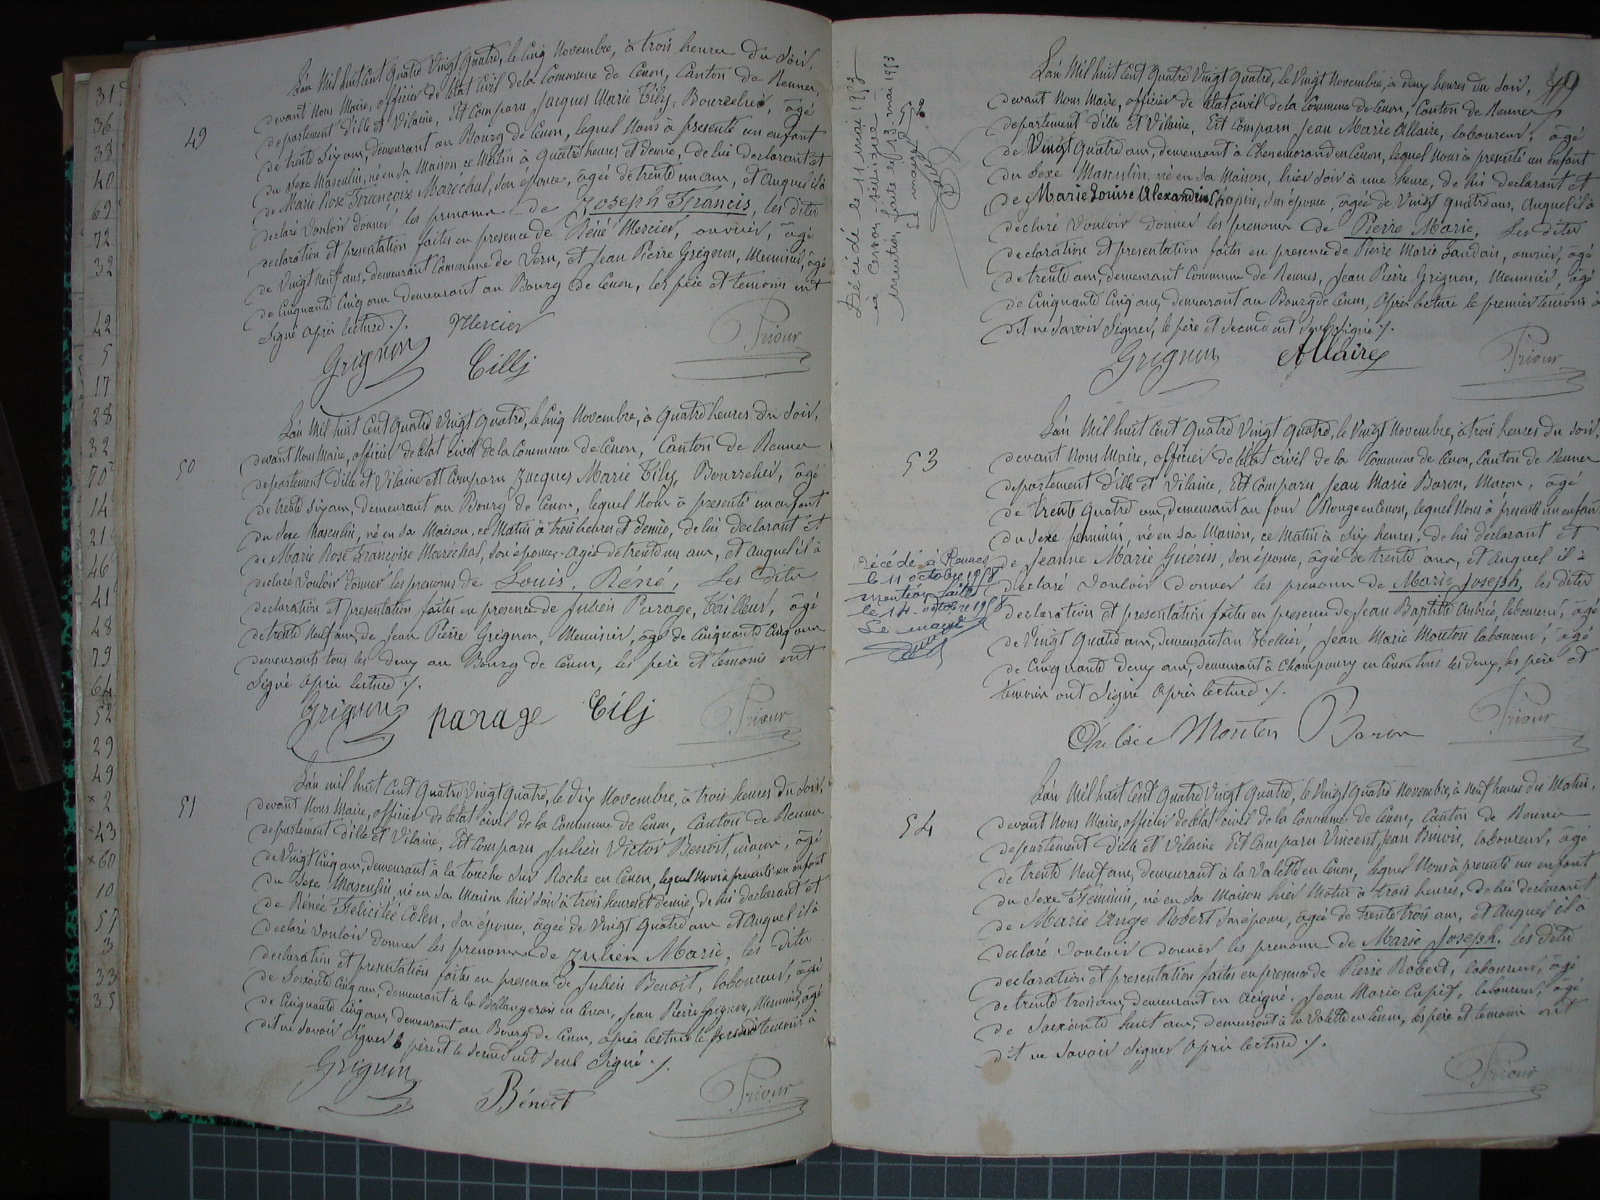 31
36
38
40
69
72
32
42
5
17
28
32
70
14
21
46
41
48
79
64
52
29
49
× 2
43
× 60
10
57
3
33
35
49
L'an Mil huit Cent Quatre Vingt Quatre, le Cinq Novembre, à trois heures du Soir,
devant Nous Maire, officier de l'état Civil de la Commune de Cenon, Canton de Rennes,
departement d'Ille et Vilaine, Est Comparu Jacques Marie Tily, Bourrelier, âgé
de trente Six ans, demeurant au Bourg de Cenon, lequel Nous à presenté un enfant
du Sexe Masculin, né en sa Maison, ce Matin à quatre heures et demie, de lui declarant et
de Marie Rose Françoise Marechal, son épouse, âgée de trente un ans, et Auquel il à
declaré Vouloir donner les prenoms de Joseph Francis, les dites
declaration et presentation faites en presence de Réné Mercier, ouvrier, âgé
de Vingt Neuf ans, demeurant Commune de Vern, et Jean Pierre Grignon, Menuisier, âgé
de Cinquante Cinq ans demeurant au Bourg de Cenon, les père et temoins ont
Signé Après lecture ./.
Mercier
Grignon Tilly Priour
50
L'an Mil huit Cent Quatre Vingt Quatre, le Cinq Novembre, à Quatre heures du Soir,
devant Nous Maire, officier de l'état Civil de la Commune de Cenon, Canton de Rennes
departement d'Ille et Vilaine Est Comparu Jacques Marie Tily, Bourrelier, âgé
de trente Six ans, demeurant au Bourg de Cenon, lequel Nous à presenté un enfant
du Sexe Masculin, né en sa Maison, ce Matin à trois heures et demie, de lui declarant et
de Marie Rose Françoise Maréchal, son épouse, Agée de trente un ans, et Auquel il à
declaré Vouloir donner les prenoms de Louis, Réné, Les dites
declaration et presentation faites en presence de Julien Parage, Tailleur, âgé
de trente Neuf ans, de Jean Pierre Grignon, Menuisier, âgé de Cinquante Cinq ans
demeurants tous les deux au Bourg de Cenon, les père et temoins ont
Signé Après lecture ./.
Grignon parage Tily Priour
51
L'an mil huit Cent Quatre Vingt Quatre, le dix Novembre, à trois heures du Soir,
devant Nous Maire, officier de l'état Civil de la Commune de Cenon, Canton de Rennes
departement d'Ille et Vilaine, Est Comparu Julien Victor Benoit, maçon, âgé
de Vingt Cinq ans, demeurant à la touche Sur Roche en Cenon, lequel Nous à presenté un enfant
du Sexe Masculin, né en sa Maison hier Soir à trois heures et demie, de lui declarant et
de Renée Félicité Colin, son épouse, âgée de Vingt Quatre ans et Auquel il à
declaré Vouloir donner les prenoms de Julien Marie, les dites
declaration et presentation faites en presence de Julien Benoit, laboureur, âgé
de Soixante Cinq ans, demeurant à la Bellangerais en Cenon, Jean Pierre Grignon, Menuisier, âgé
de Cinquante Cinq ans, demeurant au Bourg de Cenon, après lecture le premier temoin à
dit ne Savoir Signer le père et le Second ont Seul Signé ./.
Grignon Bénoit Priour
Décédé le 11 mai 1953
mention faite le 13 mai 1953
Le maire
L'an Mil huit Cent Quatre Vingt Quatre, le Vingt Novembre, à deux heures du Soir,
devant Nous Maire, officier de l'état Civil de la Commune de Cenon, Canton de Rennes
departement d'Ille et Vilaine, Est Comparu Jean Marie Allaire, laboureur, âgé
de Vingt Quatre ans, demeurant à Chenemorand en Cenon, lequel Nous à presenté un enfant
du Sexe Masculin, né en sa Maison, hier Soir à une heure, de lui declarant et
de Marie Louise Alexandrine son épouse, âgée de Vingt Quatre ans, Auquel il à
declaré Vouloir donner les prenoms de Pierre Marie, Les dites
declaration et presentation faites en presence de Pierre Marie Landais, ouvrier, âgé
de trente ans, demeurant Commune de Rennes, Jean Pierre Grignon, Menuisier, âgé
de Cinquante Cinq ans, demeurant au Bourg de Cenon, Après lecture le premier temoins à
dit ne Savoir Signer, le père et Second ont Seul Signé ./.
Grignon Allaire Priour
53
L'an Mil huit Cent Quatre Vingt Quatre, le Vingt Novembre, à trois heures du Soir,
devant Nous Maire, officier de l'état Civil de la Commune de Cenon, Canton de Rennes
departement d'Ille et Vilaine, Est Comparu Jean Marie Baron, Maçon, âgé
de trente Quatre ans, demeurant au four Rouge en Cenon, lequel Nous à presenté un enfant
du Sexe feminin, né en sa Maison, ce Matin à Six heures, de lui declarant et
de Jeanne Marie Guérin, son épouse, âgée de trente ans, et Auquel il à
declaré Vouloir donner les prenoms de Marie Joseph, les dites
declaration et presentation faites en presence de Jean Baptiste Aubrée, laboureur, âgé
de Vingt Quatre ans, demeurant au Jean Marie Mouton laboureur, âgé
de Cinquante deux ans, demeurant à Champoury en Cenon tous les deux, les père et
temoins ont Signé Après lecture ./.
Décédé à Rennes
le 11 octobre 1958
mention faite
le 14 octobre 1958
Le maire
Aubrée Mouton Baron Priour
54
L'an Mil huit Cent Quatre Vingt Quatre, le Vingt Quatre Novembre, à Neuf heures du Matin,
devant Nous Maire, officier de l'état Civil de la Commune de Cenon, Canton de Rennes
departement d'Ille et Vilaine Est Comparu Vincent Jean laboureur, âgé
de trente Neuf ans, demeurant à la Valette en Cenon, lequel Nous à presenté un enfant
du Sexe Feminin, né en sa Maison hier Matin à trois heures, de lui declarant
de Marie Ange Robert son épouse, âgée de trente trois ans, et Auquel il à
declaré Vouloir donner les prenoms de Marie Joseph, les dites
declaration et presentation faites en presence de Pierre Robert, laboureur, âgé
de trente trois ans, demeurant en Acigné, Jean Marie laboureur, âgé
de Soixante huit ans, demeurant à la Valette en Cenon, les père et temoins ont
dit ne Savoir Signer Après lecture ./.
Priour